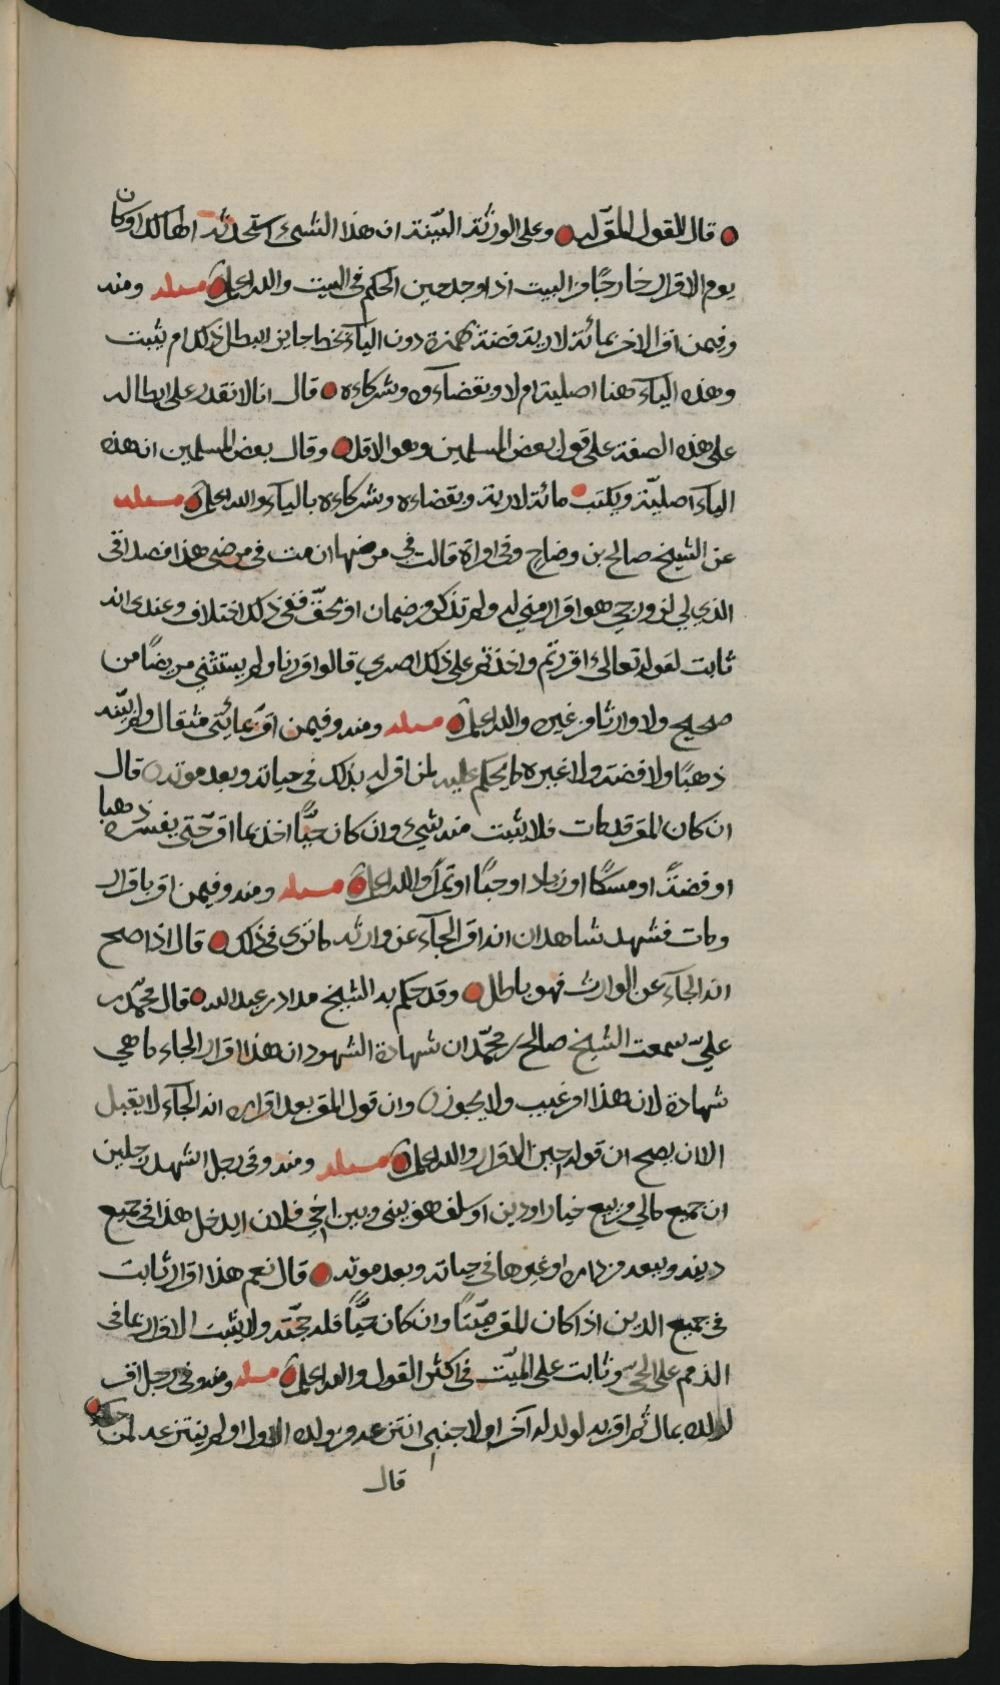 قال القول للمقر له وعلى الورثة البينة ان هذا الشيء استحدثه الهالك او كان
يوم الاقرار خارجًا من البيت اذا وجد حين الحكم في البيت والله اعلم مسئلة ومنه
وفيمن اقر لاخر بمائة لارية فضة بهمزة دون الياء بخط جايز ايبطل ذلك ام يثبت
وهذه الياء هنا اصلية ام لا وبقضاءه وشركاءه قال انا لا نقدر على ابطاله
على هذه الصفة على قول بعض المسلمين وهو الاقل وقال بعض المسلمين ان هذه
الياء اصليّة ويكتب مائة لارية وبقضاءه وشركاءه بالياء والله اعلم مسئلة
عن الشيخ صالح بن وضاح وفي امراة قالت في مرضها ان مت في مرضي هذا فصداقي
الذي لي لزوجي هو اقرار مني له ولم تذكر من ضمان او بحقّ ففي ذلك اختلاف وعندي انه
ثابت لقوله تعالى ااقررتم واخذتم على ذلكم اصري قالوا اقررنا ولم يستثني مريضًا من
صحيح ولا وارثا من غيره والله اعلم مسئلة ومنه وفيمن اقر بمائتي مثقال ولم يبينه
ذهبًا ولا فضة ولا غيره ما يحكم عليه لمن اقر له بذلك في حياته وبعد موته قال
ان كان المقر قد مات فلا يثبت منه شيء وان كان حيًّا اخذ بما اقر حتى يفسره ذهبا
او فضةً او مسكًا او زباد او حبًا او تمرًا والله اعلم مسئلة ومنه وفيمن اقر باقرار
ومات فشهد شاهدان انه اقر الجاء عن وارثه ما ترى في ذلك قال اذا صح
انه الجاء عن الوارث فهو باطل وقد حكم به الشيخ مداد بن عبدالله قال محمد بن
عليّ سمعت الشيخ صالح بن محمّد ان شهادة الشهود ان هذا اقرار الجاء ما هي
شهادة لان هذا امر غيب ولا يجوز وان قول المقر بعد اقراره انه الجاء لا يقبل
الا ان يصح ان قوله حين الاقرار والله اعلم مسئلة ومنه وفي رجل اشهد رجلين
ان جميع مالي من بيع خيار او دين او سلف هو بيني وبين اخي فلان ايدخل هذا في جميع
دينه وبيعه من داره او غيرها في حياته وبعد موته قال نعم هذا اقرار ثابت
في جميع الدين اذا كان المقر ميّتًا وان كان حيًّا فله حجّته ولا يثبت الاقرار بما في
الذمم على الحيّ وثابت على الميّت في اكثر القول والله اعلم مسئلة ومنه وفي رجل اقر
لولده بمال ثم اقر به لولد له آخر او لاجنبي انتزعه من ولده الاول او لم ينتزعه لمن
قال